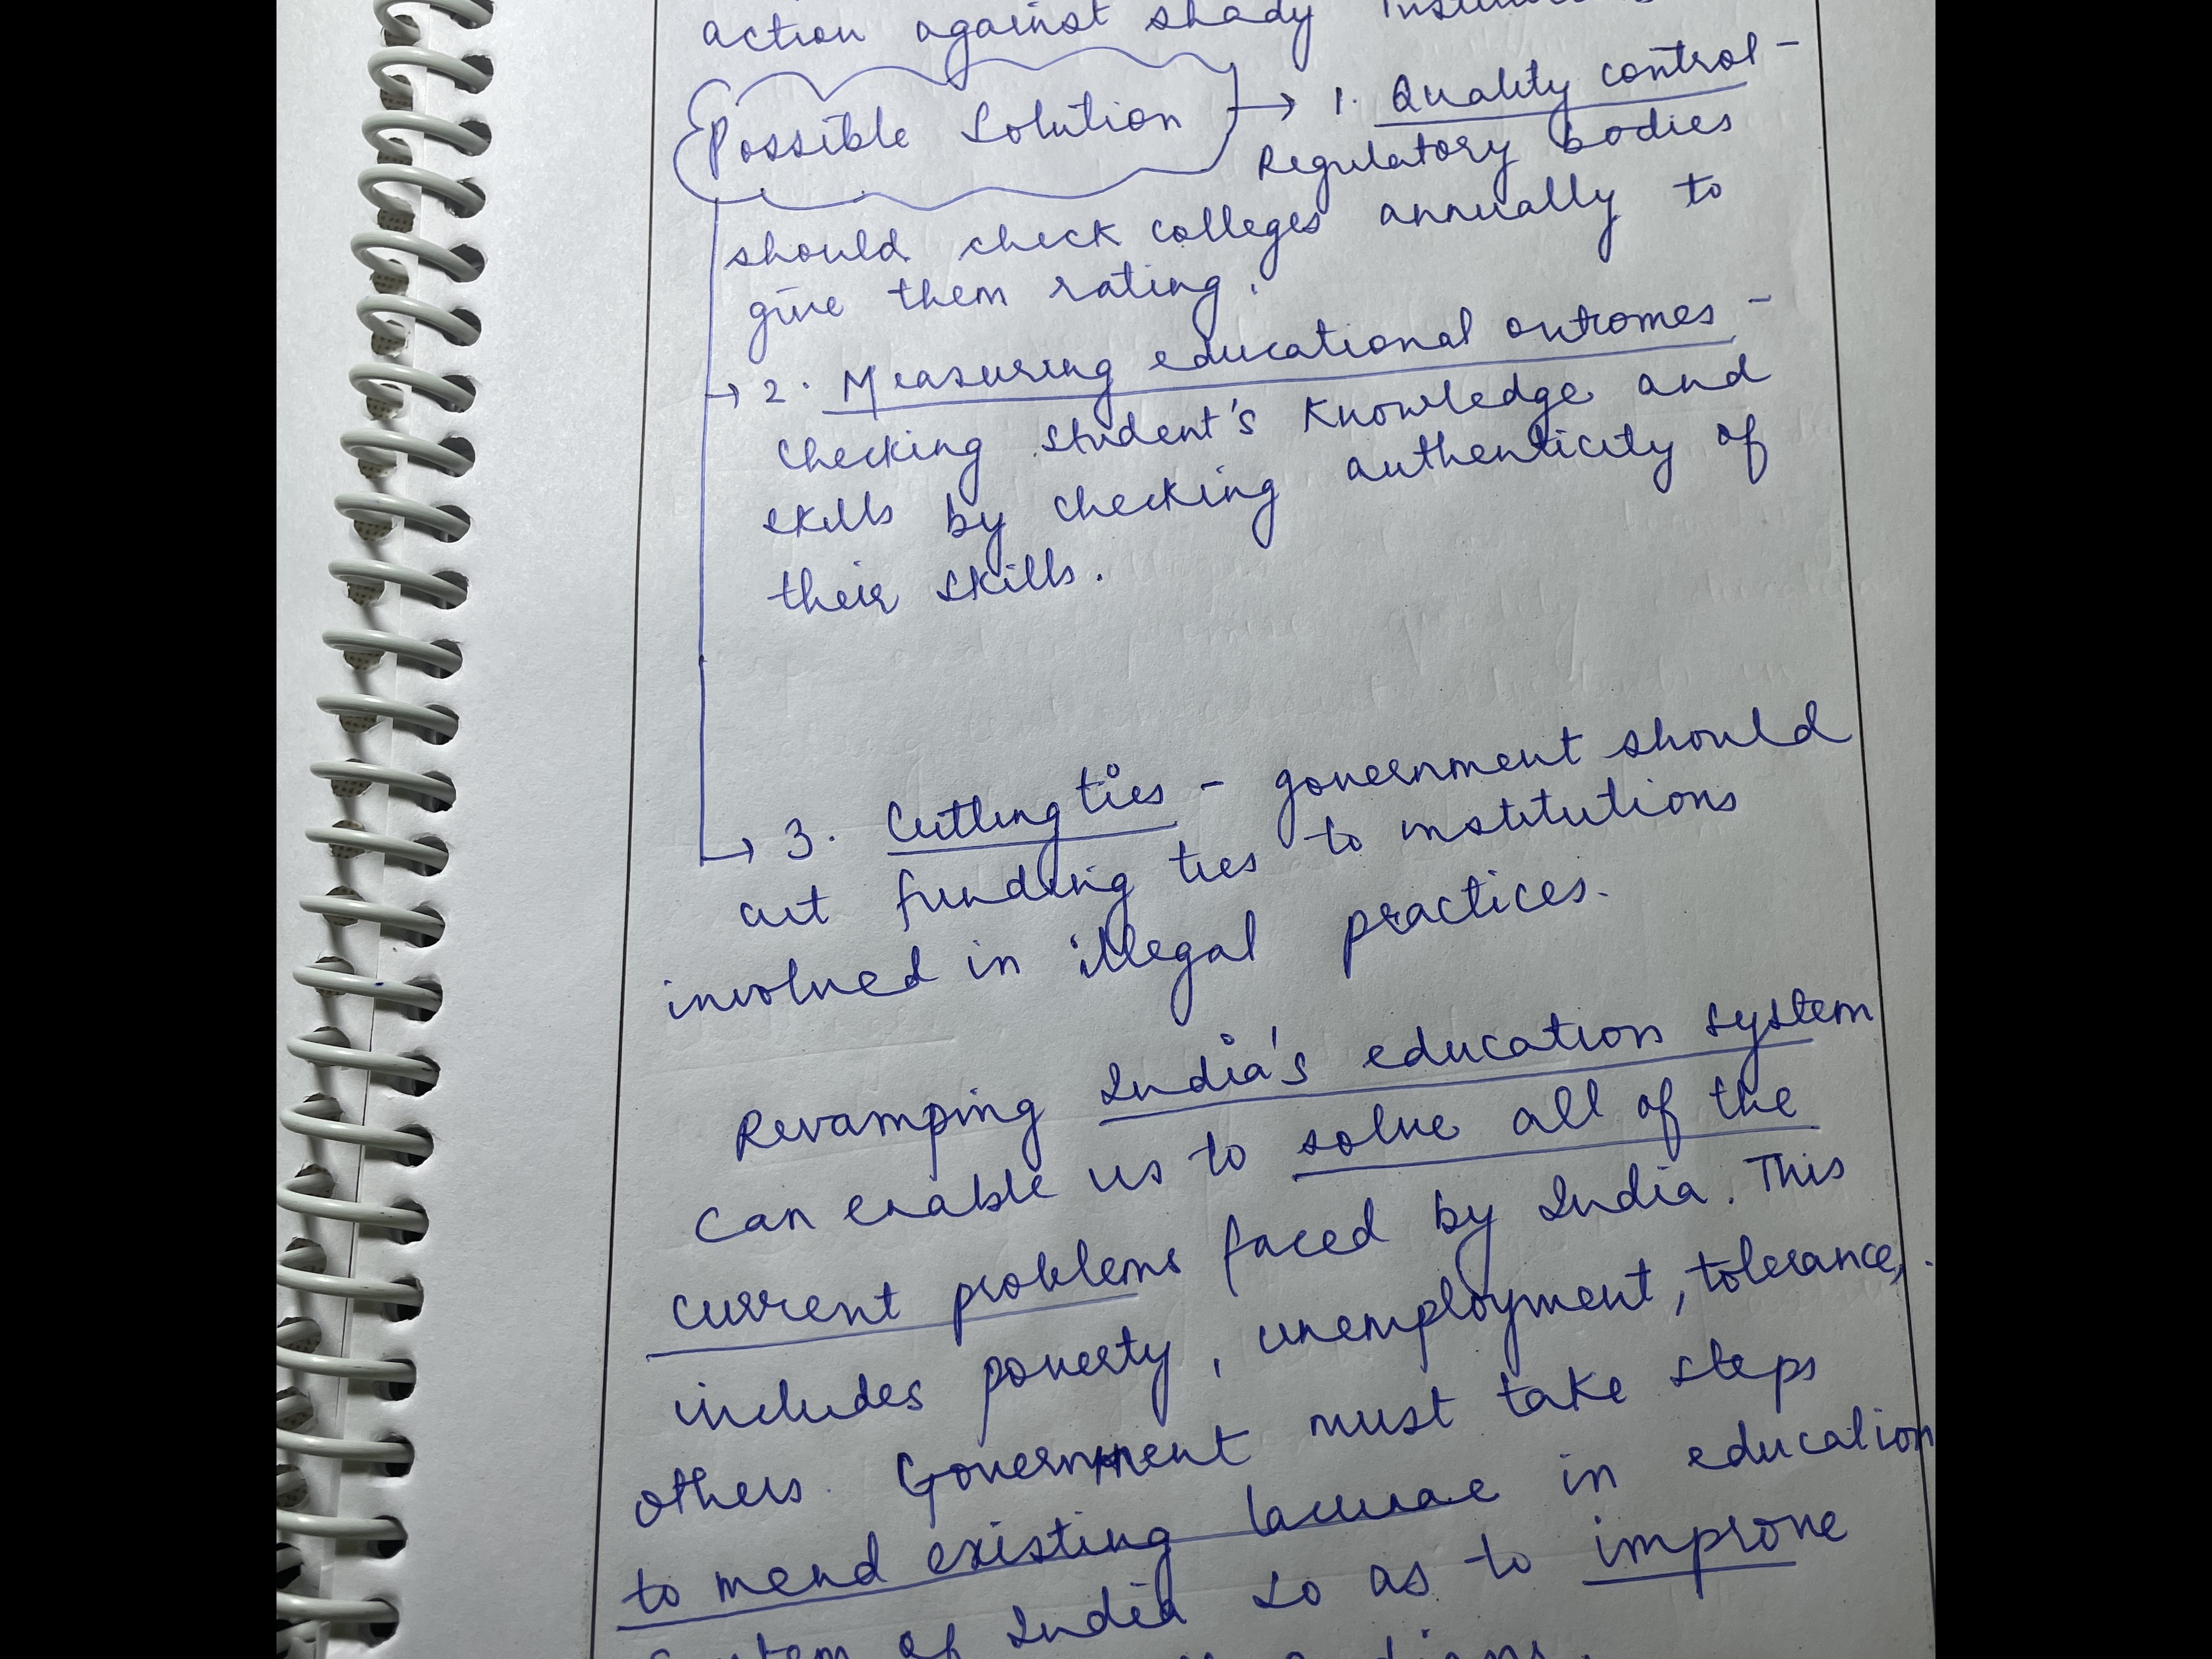 action against shady
Possible Solution → 1. Quality control -
Regulatory bodies
should check colleges annually to
give them rating.
→ 2. Measuring educational outcomes -
checking student's knowledge and
skills by checking authenticity of
their skills.
→ 3. Cutting ties - government should
cut funding ties to institutions
involved in illegal practices.
Revamping India's education system
can enable us to solve all of the
current problems faced by India. This
includes poverty, unemployment, tolerance,
others. Government must take steps
to mend existing lacunae in education
system of India so as to improve